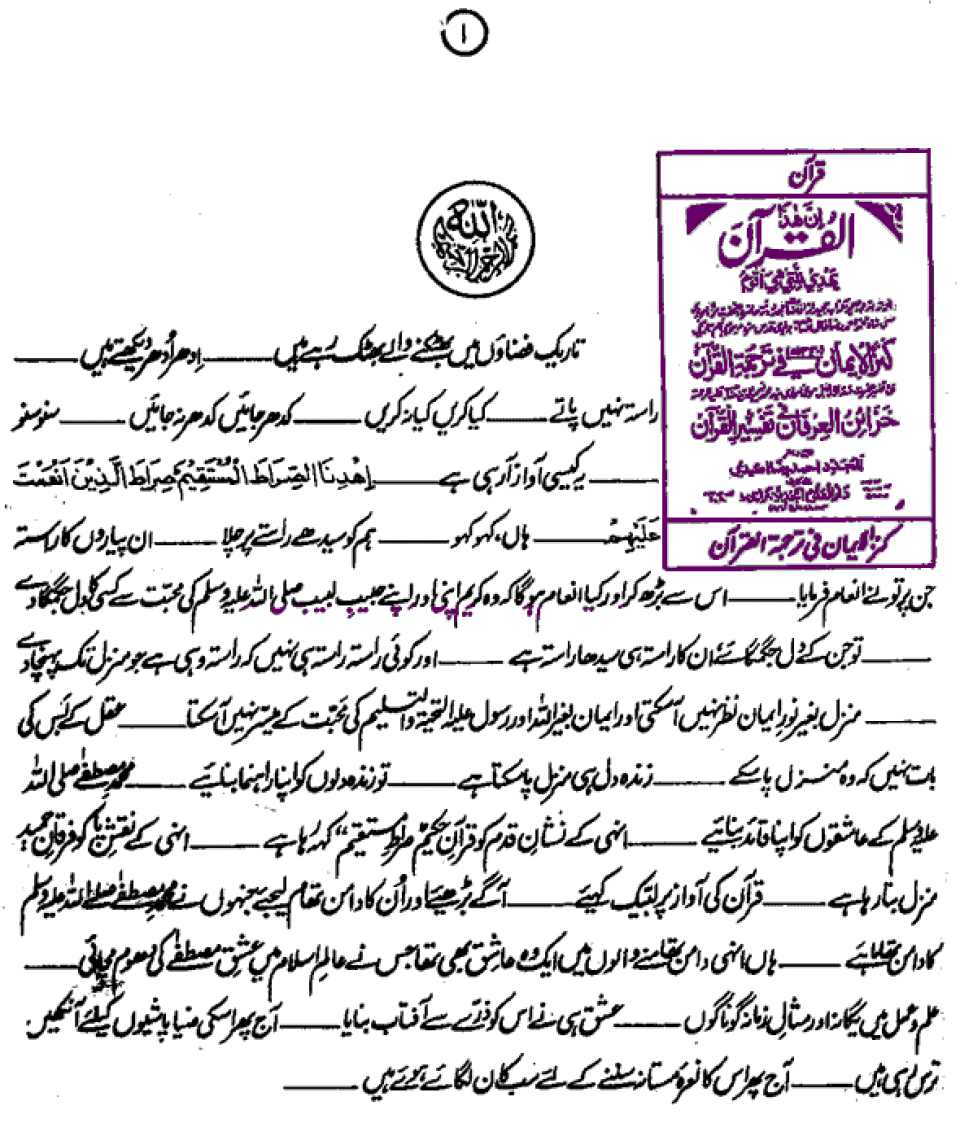 ۱
قرآن
اِنَّ هٰذَا
القرآن
يَهْدِي لِلَّتِي هِيَ اَقْوَمُ
کنزالایمان فی ترجمۃ القرآن
خزائن العرفان فی تفسیر القرآن
کنزالایمان فی ترجمۃ القرآن
تاریک فضاؤں میں بھٹکنے والے بھٹک رہے ہیں ــــــ اِدھر اُدھر دیکھتے ہیں ــــــ
راستہ نہیں پاتے ــــــ کیا کریں کیا نہ کریں ــــــ کدھر جائیں کدھر نہ جائیں ــــــ سنو سنو
ــــــ یہ کیسی آواز آرہی ہے ــــــ اِهْدِنَا الصِّرَاطَ الْمُسْتَقِيْمَ صِرَاطَ الَّذِيْنَ اَنْعَمْتَ
عَلَيْهِمْ ــــــ ہاں، کہو کہو ــــــ ہم کو سیدھے راستے پر چلا ــــــ ان پیاروں کا راستہ
جن پر تو نے انعام فرمایا ــــــ اس سے بڑھ کر اور کیا انعام ہوگا کہ وہ کریم اپنی اور اپنے حبیبِ لبیب صلی اللہ علیہ وسلم کی محبّت سے کسی کا دل جگمگا دے
ــــــ تو جن کے دل جگمگائے ان کا راستہ ہی سیدھا راستہ ہے ــــــ اور کوئی راستہ راستہ ہی نہیں کہ راستہ وہی ہے جو منزل تک پہنچا دے
ــــــ منزل بغیر نورِ ایمان نظر نہیں آسکتی اور ایمان بغیر اللہ اور رسول علیہ التحیۃ والتسلیم کی محبّت کے میسّر نہیں آسکتا ــــــ عقل کے بس کی
بات نہیں کہ وہ منزل پا سکے ــــــ زندہ دل ہی منزل پا سکتا ہے ــــــ تو زندہ دلوں کو اپنا راہنما بنائیے ــــــ محمد مصطفےٰ صلی اللہ
علیہ وسلم کے عاشقوں کو اپنا قائد بنائیے ــــــ انہی کے نشانِ قدم کو قرآنِ حکیم ”صراطِ مستقیم“ کہہ رہا ہے ــــــ انہی کے نقشِ پا کو فرقانِ حمید
منزل بتا رہا ہے ــــــ قرآن کی آواز پر لبّیک کہیئے ــــــ آگے بڑھیئے اور اُن کا دامن تھام لیجیے جنہوں نے محمد مصطفےٰ صلی اللہ علیہ وسلم
کا دامن تھاما ہے ــــــ ہاں انہی دامن تھامنے والوں میں ایک وہ عاشق بھی تھا جس نے عالمِ اسلام میں عشقِ مصطفےٰ کی دھوم مچائی ــــــ
علم و عمل میں یگانہ اور مثالِ زمانہ گوناگوں ــــــ عشق ہی نے اس کو ذرّے سے آفتاب بنایا ــــــ آج پھر اسکی ضیا پاشیوں کیلئے آنکھیں
ترس رہی ہیں ــــــ آج پھر اس کا نعرۂ مستانہ سننے کے لئے سب کان لگائے ہوئے ہیں ــــــ